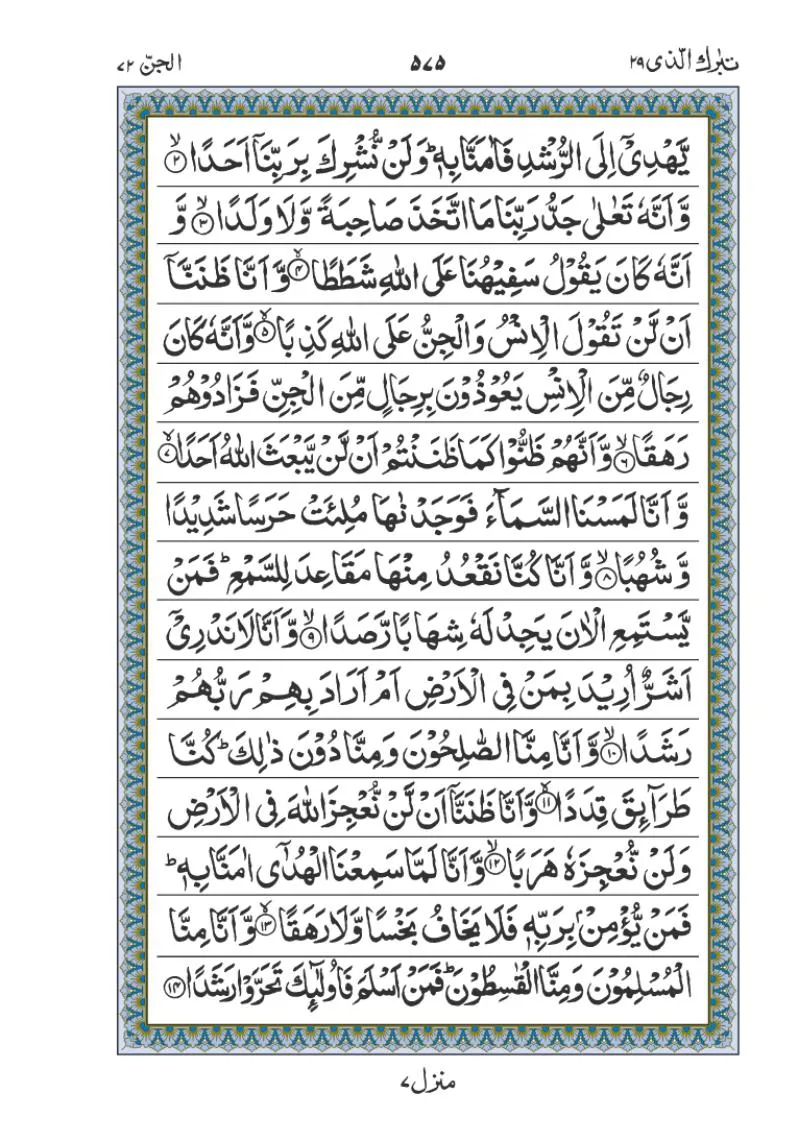 تبٰرك الّذی ۲۹ ۵۷۵ الجنّ ۷۲
یَّهْدِیْۤ اِلَی الرُّشْدِ فَاٰمَنَّا بِهٖ ؕ وَلَنْ نُّشْرِكَ بِرَبِّنَاۤ اَحَدًا ۙ﴿۲﴾
وَّ اَنَّهٗ تَعٰلٰی جَدُّ رَبِّنَا مَا اتَّخَذَ صَاحِبَةً وَّلَا وَلَدًا ۙ﴿۳﴾ وَّ
اَنَّهٗ كَانَ یَقُوْلُ سَفِیْهُنَا عَلَی اللّٰهِ شَطَطًا ۙ﴿۴﴾ وَّ اَنَّا ظَنَنَّاۤ
اَنْ لَّنْ تَقُوْلَ الْاِنْسُ وَالْجِنُّ عَلَی اللّٰهِ كَذِبًا ۙ﴿۵﴾ وَّاَنَّهٗ كَانَ
رِجَالٌ مِّنَ الْاِنْسِ یَعُوْذُوْنَ بِرِجَالٍ مِّنَ الْجِنِّ فَزَادُوْهُمْ
رَهَقًا ۙ﴿۶﴾ وَّاَنَّهُمْ ظَنُّوْا كَمَا ظَنَنْتُمْ اَنْ لَّنْ یَّبْعَثَ اللّٰهُ اَحَدًا ۙ﴿۷﴾
وَّ اَنَّا لَمَسْنَا السَّمَآءَ فَوَجَدْنٰهَا مُلِئَتْ حَرَسًا شَدِیْدًا
وَّ شُهُبًا ۙ﴿۸﴾ وَّ اَنَّا كُنَّا نَقْعُدُ مِنْهَا مَقَاعِدَ لِلسَّمْعِ ؕ فَمَنْ
یَّسْتَمِعِ الْاٰنَ یَجِدْ لَهٗ شِهَابًا رَّصَدًا ۙ﴿۹﴾ وَّ اَنَّا لَا نَدْرِیْۤ
اَشَرٌّ اُرِیْدَ بِمَنْ فِی الْاَرْضِ اَمْ اَرَادَ بِهِمْ رَبُّهُمْ
رَشَدًا ۙ﴿۱۰﴾ وَّ اَنَّا مِنَّا الصّٰلِحُوْنَ وَمِنَّا دُوْنَ ذٰلِكَ ؕ كُنَّا
طَرَآئِقَ قِدَدًا ۙ﴿۱۱﴾ وَّاَنَّا ظَنَنَّاۤ اَنْ لَّنْ نُّعْجِزَ اللّٰهَ فِی الْاَرْضِ
وَلَنْ نُّعْجِزَهٗ هَرَبًا ۙ﴿۱۲﴾ وَّ اَنَّا لَمَّا سَمِعْنَا الْهُدٰۤی اٰمَنَّا بِهٖ ؕ
فَمَنْ یُّؤْمِنْۢ بِرَبِّهٖ فَلَا یَخَافُ بَخْسًا وَّلَا رَهَقًا ۙ﴿۱۳﴾ وَّ اَنَّا مِنَّا
الْمُسْلِمُوْنَ وَمِنَّا الْقٰسِطُوْنَ ؕ فَمَنْ اَسْلَمَ فَاُولٰٓئِكَ تَحَرَّوْا رَشَدًا ﴿۱۴﴾
منزل ۷